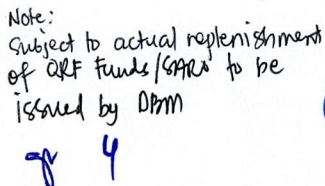 Note:
Subject to actual replenishment
of QRF Funds/SARO to be
issued by DBM